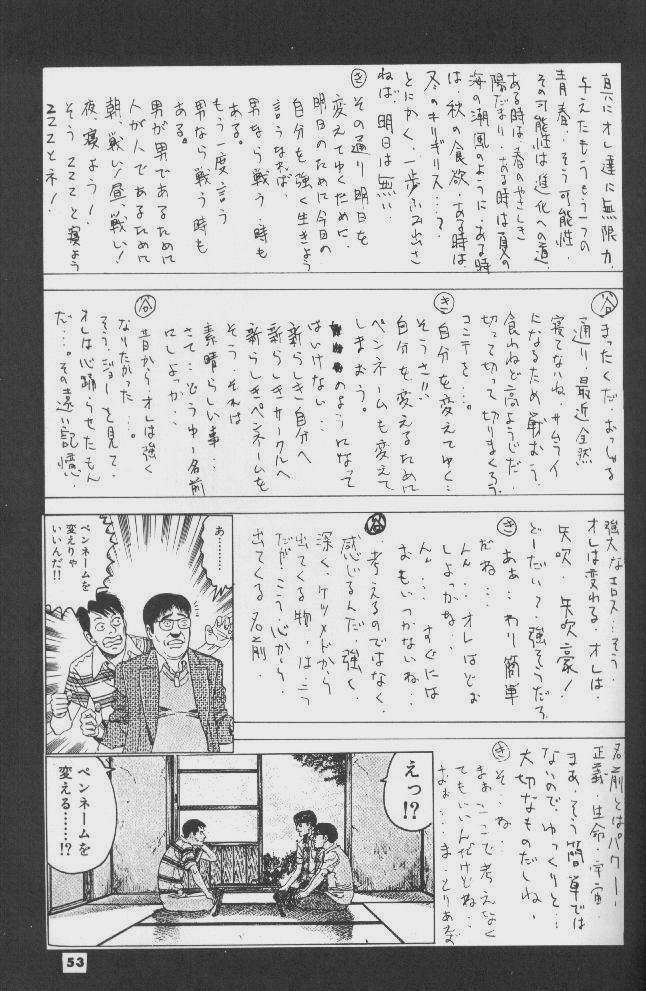 真にオレ達に無限力
与えたもうたもう一つの
青春、そう可能性、
その可能性は進化への道、
ある時は春のやさしき
陽だまり、ある時は夏の
海の潮風のように、ある時
は、秋の食欲、ある時は、
冬のキリギリス…？
とにかく、一歩ふみ出さ
ねば明日は無い…
き その通り明日を
変えてゆくために、
明日のために今日の
自分を強く生きよう
言うなれば、
男なら戦う時も
ある。
もう一度言う
男なら戦う時も
ある。
男が男であるために
人が人であるために
朝、戦い！昼、戦い！
夜寝よう！
そう ZZZ と寝よう
ZZZとネ！
まったくだ おっしゃる
通り、最近全然
寝てないね、サムライ
になるため戦おう、
食わねど高ようじだ、
切って切って切りまくろう
コンテを…。
き 自分を変えてゆく…
そうさ!!
自分を変えるために
ペンネームも変えて
しまおう。
のようになって
はいけない…
新らしき自分へ
新らしきサークルへ
新らしきペンネームを
そう、それは
素晴らしい事…
さて…どうゆー名前
にしよっか、
昔からオレは強く
なりたかった…
そう、ジョーを見て、
オレは心踊らせたもん
だ…。その遠い記憶
強大なエロス…そう、
オレは変わる、オレは、
矢吹、矢吹豪！
どーだい？、強そうだろ
き ああ…わり簡単
だね…
んん…オレはどお
しよっかな…
んん…すぐには
おもいつかないね、
考えるのではなく、
感じるんだ、強く、
深く、ケツメドから
出てくる物、はこう
だが…こう、心から、
出てくる名前、
名前とはパワー、
正義、生命、宇宙
まあ、そう簡単では
ないので、ゆっくりと…
大切なものだしね、
き そ…ね…
まぁ、ここで考えなく
てもいいんだけどね…
あ………
ペンネームを
変えりゃ
いいんだ!!
えっ!?
ペンネームを
変える……!?
53